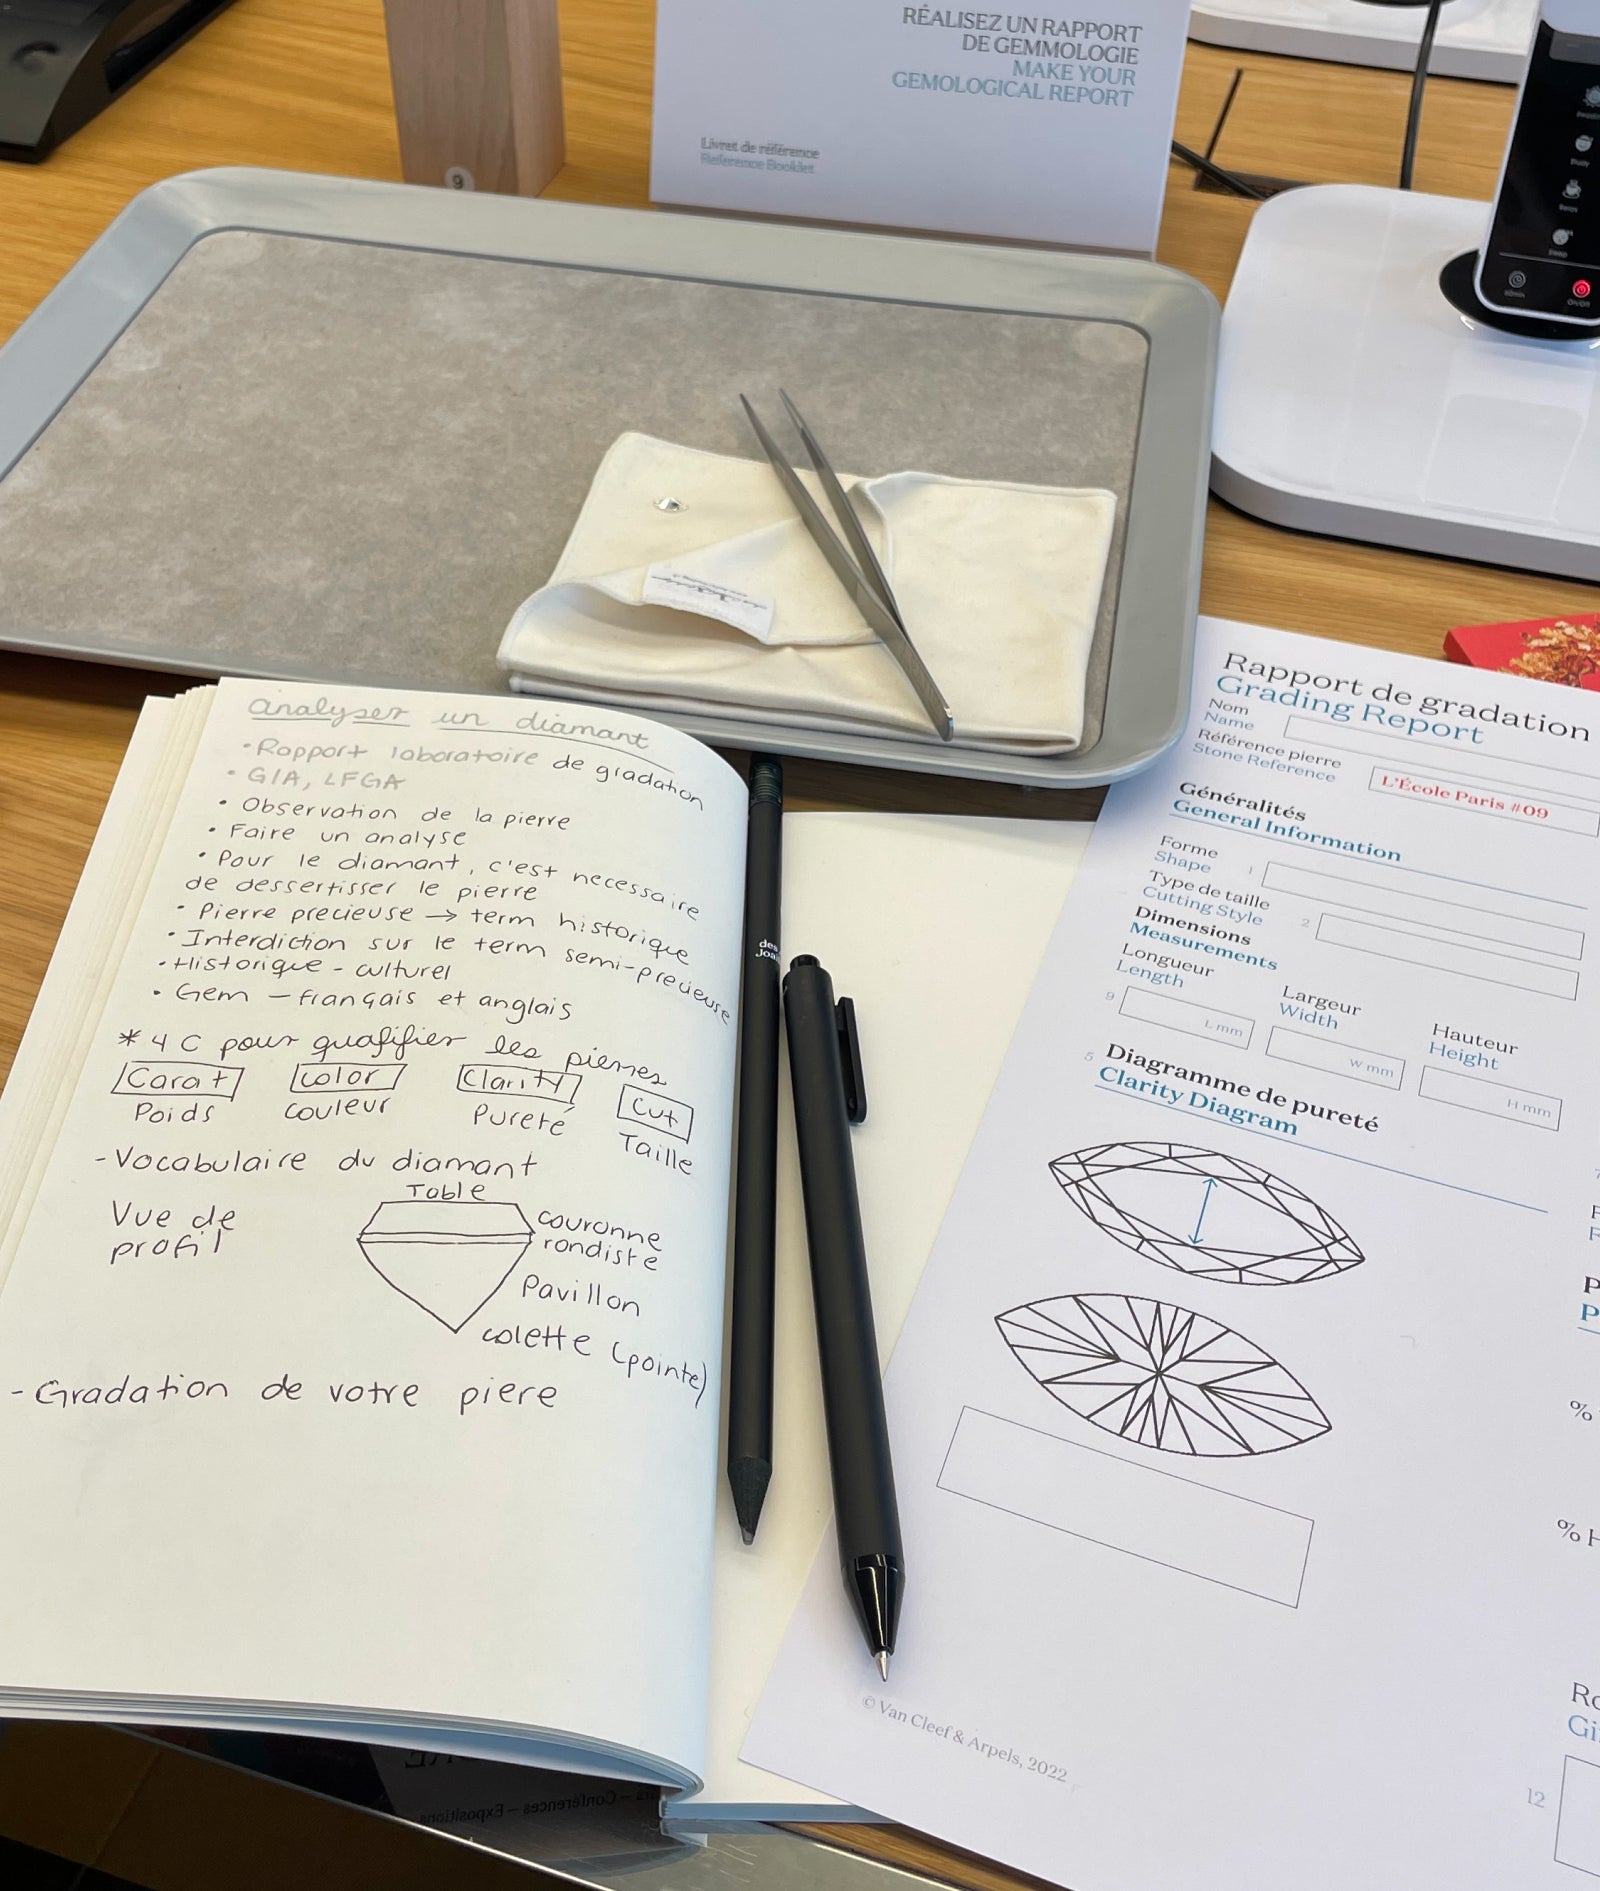 RÉALISEZ UN RAPPORT
DE GEMMOLOGIE
MAKE YOUR
GEMOLOGICAL REPORT
Livret de référence
Reference Booklet
9
Study
Relax
Sleep
60min
ON/OFF
analyser un diamant
• Rapport laboratoire de gradation
• GIA, LFGA
• Observation de la pierre
• Faire un analyse
• Pour le diamant, c'est necessaire
de dessertisser le pierre
• Pierre precieuse → term historique
• Interdiction sur le term semi-precieuse
• Historique - culturel
• Gem — français et anglais
* 4 C pour qualifier les pierres
Carat Color Clarity Cut
Poids couleur Pureté Taille
- Vocabulaire du diamant
Table
Vue de
profil
couronne
rondiste
Pavillon
colette (pointe)
- Gradation de votre piere
des
Joai
Rapport de gradation
Grading Report
Nom
Name
Référence pierre
Stone Reference
L'École Paris #09
Généralités
General Information
Forme
Shape
1
Type de taille
Cutting Style
2
Dimensions
Measurements
Longueur
Length
9
L mm
Largeur
Width
W mm
Hauteur
Height
H mm
5
Diagramme de pureté
Clarity Diagram
P
P
%
% H
Ro
Gi
12
© Van Cleef & Arpels, 2022
rs – Conférences – Expositions